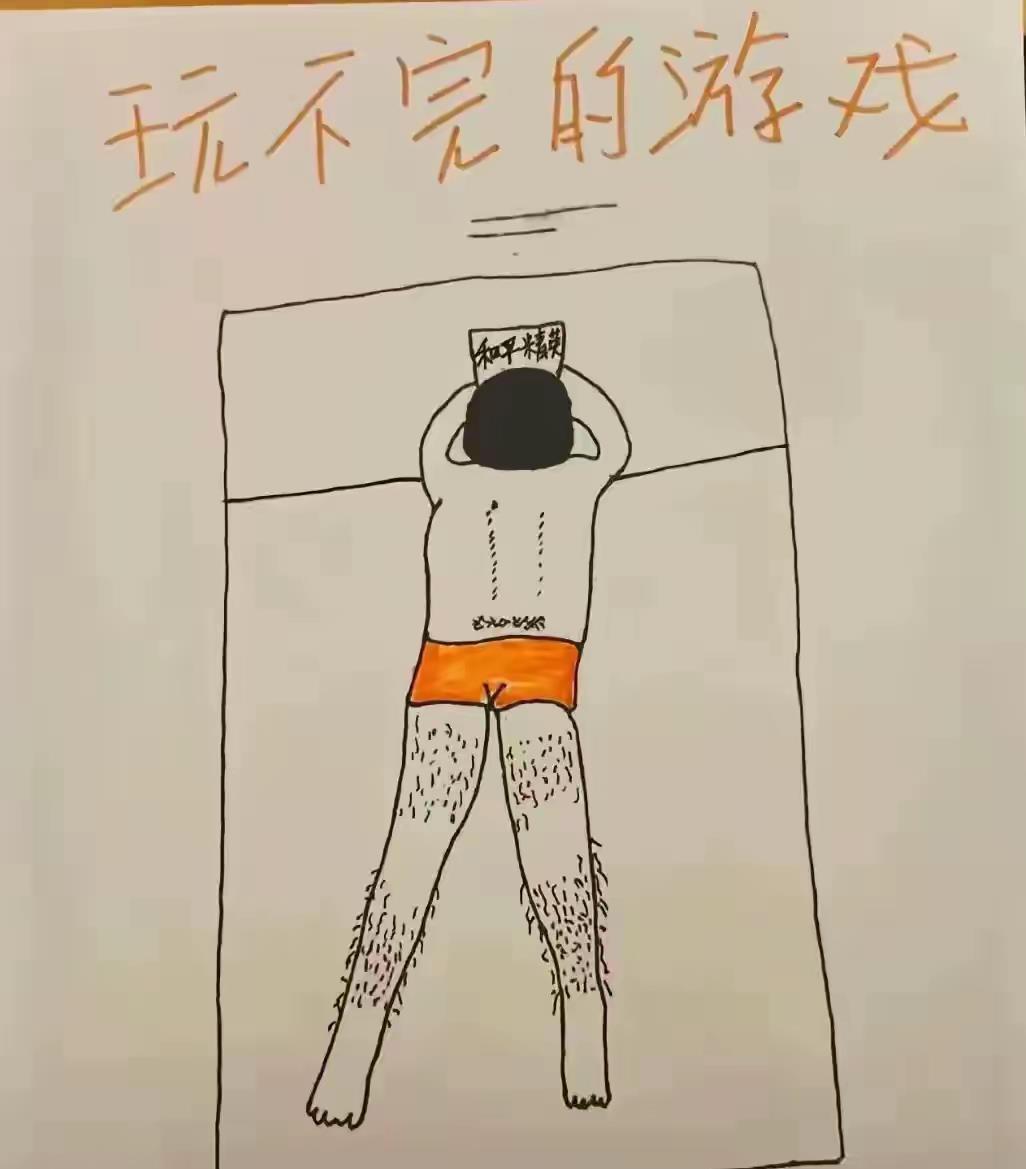 玩不完的游戏
和平精英